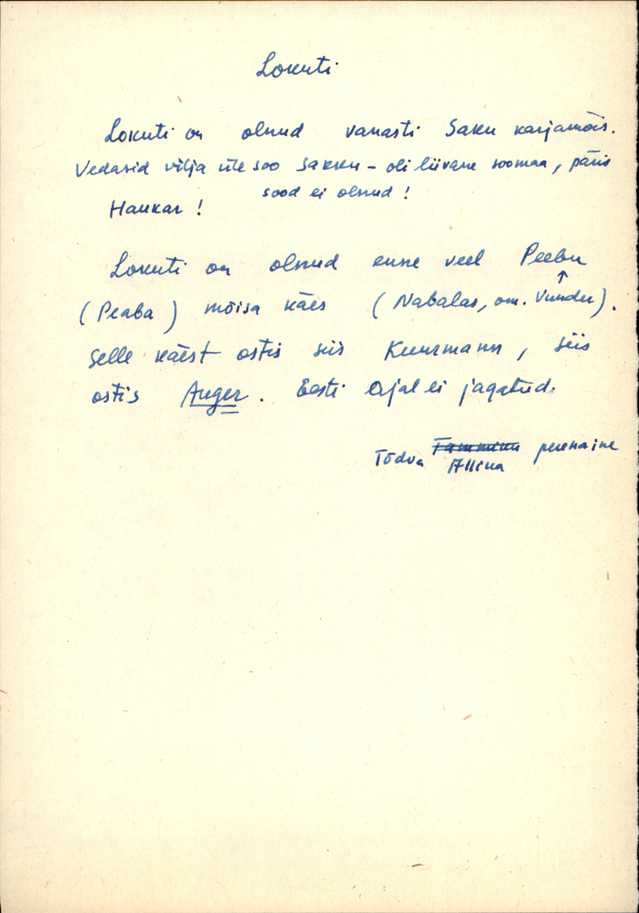 Lokuti
Lokuti on olnud vanasti Saku karjamõis.
Vedasid vilja üle soo Sakku – oli liivane soomaa, päris
sood ei olnud!
Haukar!
Lokuti on olnud enne veel Peebu
↑
(Peaba) mõisa käes (Nabalas, om. Vunder).
Selle käest ostis siis Kuurmann, siis
ostis Auger. Eesti ajal ei jagatud.
Tõdva Tammann perenaine
Allika